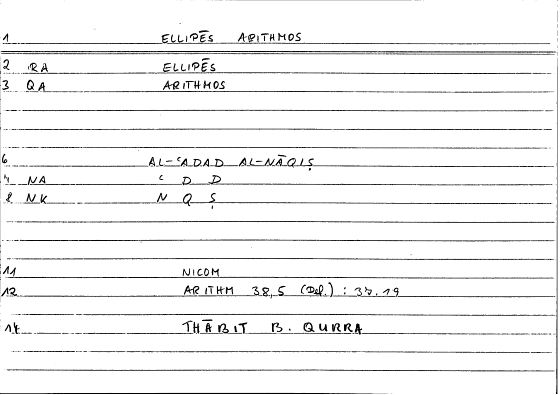 1 ELLIPĒS ARITHMOS
2 RA ELLIPĒS
3 QA ARITHMOS
6 AL-ʿADAD AL-NĀQIṢ
4 NA ʿ D D
8 NK N Q Ṣ
11 NICOM
12 ARITHM 38,5 (Def.) : 37.19
14 THĀBIT B. QURRA